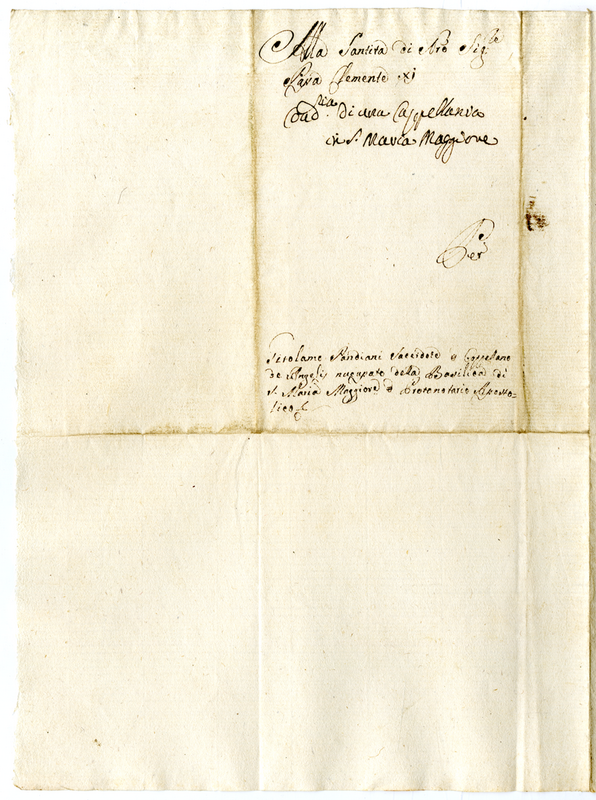 Alla Santità di Nro Sig.re
Papa Clemente XI
di una Cappellania
in S. Maria Maggiore
Per
Girolamo Sandiani Sacerdote e Cappellano
de Angelis nuncupato della Basilica di
S. Maria Maggiore e Protonotario Aposto=
lico